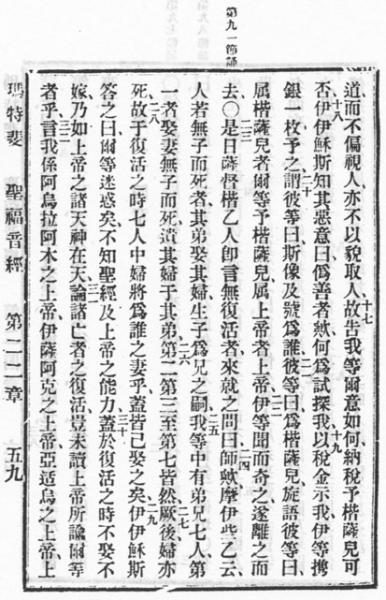 第九一節誦
十七
道而不偏視人亦不以貌取人故告我等爾意如何納稅予楷薩兒可
十八 十九
否伊伊穌斯知其惡意曰僞善者歟何爲試探我以稅金示我伊等攜
二十 二一
銀一枚予之謂彼等曰斯像及號爲誰彼等曰爲楷薩兒旋語彼等曰
二二
属楷薩兒者爾等予楷薩兒属上帝者上帝伊等聞而奇之遂離之而
二三 二四
去○是日薩督楷乙人卽言無復活者來就之問曰師歟摩伊些乙云
二五
人若無子而死者其弟娶其婦生子爲兄之嗣我等中有弟兄七人第
二六 二七
一者娶妻無子而死遺其婦于其弟第二第三至第七皆然厥後婦亦
二八 二九
死故于復活之時七人中婦將爲誰之妻乎蓋皆已娶之矣伊伊穌斯
三十
答之曰爾等迷惑矣不知聖經及上帝之能力蓋於復活之時不娶不
三一
嫁乃如上帝之諸天神在天論諸亡者之復活豈未讀上帝所諭爾等
三二
者乎言我係阿烏拉阿木之上帝伊薩阿克之上帝亞适烏之上帝上
瑪特斐 聖福音經 第二二章 五九